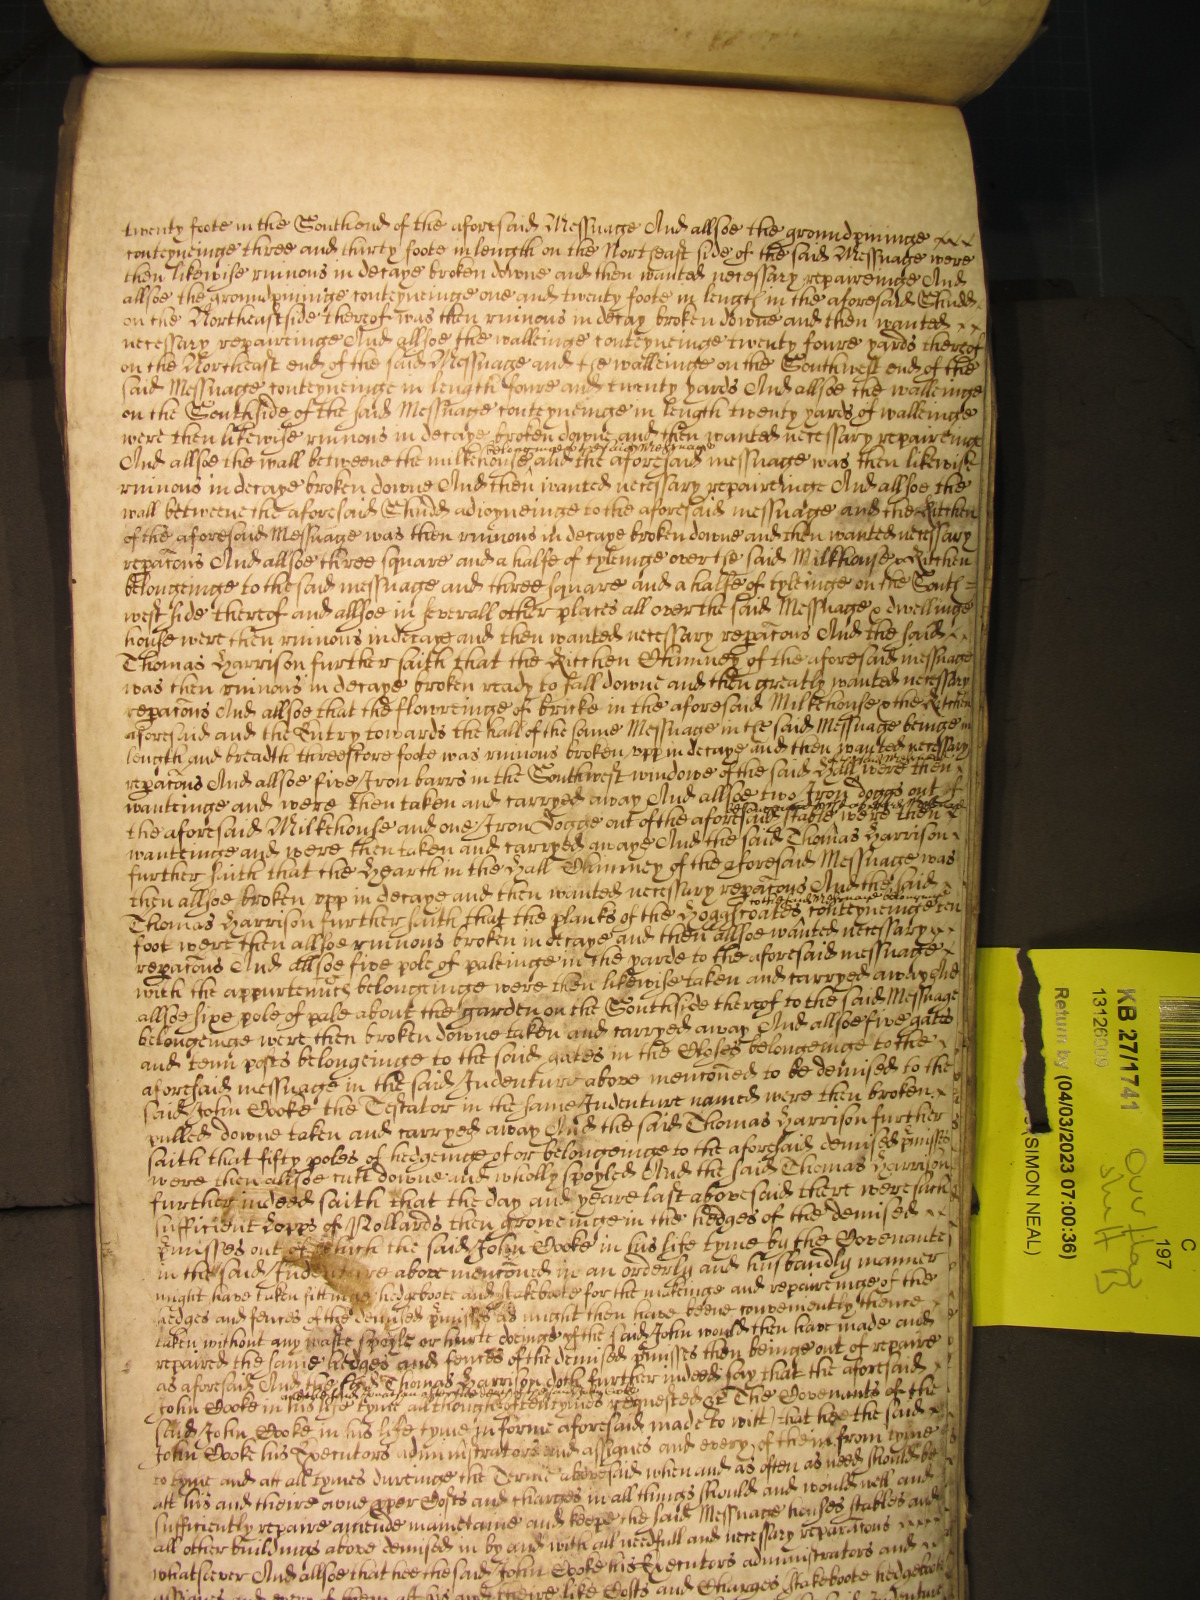 twenty foote in the Southend of the aforesaid Messuage And allsoe the groundpininge
conteyneinge three and thirty foote in length on the Northeast side of the said Messuage were
then likewise ruinous in decaye broken downe and then wanted necessary repaireinge And
allsoe the groundpininge conteyneinge one and twenty foote in length in the aforesaid Shudd
on the Northeastside thereof was then ruinous in decay broken downe and then wanted
necessary repaireinge And allsoe the walleinge conteyneinge twenty foure yards thereof
on the Northeast end of the said Messuage and the walleinge on the Southwest end of the
said Messuage conteyneinge in length foure and twenty yards And allsoe the walleinge
on the Southside of the said Messuage conteyneinge in length twenty yards of walleinge
were then likewise ruinous in decaye broken downe and then wanted necessary repaireinge
belongeinge to the said messuage
And allsoe the wall betweene the milkehouse and the aforesaid messuage was then likewise
ruinous in decaye broken downe And then wanted necessary repaireinge And allsoe the
wall betweene the aforesaid Shudd adioyneinge to the aforesaid messuage and the Kitchen
of the aforesaid Messuage was then ruinous in decaye broken downe and then wanted necessary
reparacons And allsoe three square and a halfe of tyleinge over the said Milkhouse Kitchen
belongeinge to the said messuage and three square and a halfe of tyleinge on the South=
west side thereof and allsoe in severall other places all over the said Messuage & dwellinge
house were then ruinous in decaye and then wanted necessary reparacons And the said
Thomas Harrison further saith that the Kitchen Chimney of the aforesaid messuage
was then ruinous in decaye broken ready to fall downe and then greatly wanted necessary
reparacons And allsoe that the flowreinge of bricke in the aforesaid Milkehouse & the Kitchen
aforesaid and the Entry towards the hall of the same Messuage in the said Messuage beinge in
length and breadth threescore foote was ruinous broken upp in decaye and then wanted necessary
reparacons And allsoe five Iron barrs in the Southwest windowe of the said Hall were then
wanteinge and were then taken and carryed away And allsoe two Iron doggs out of
the aforesaid Milkehouse and one Iron Dogge out of the aforesaid stable were then
wanteinge and were then taken and carryed awaye And the said Thomas Harrison
further saith that the Hearth in the Hall Chimney of the aforesaid Messuage was
then allsoe broken upp in decaye and then wanted necessary reparacons And the said
to the said Messuage belongeinge
Thomas Harrison further saith that the planks of the Hoggscoates conteyneinge ten
foot were then allsoe ruinous broken in decaye and then allsoe wanted necessary
reparacons And allsoe five pole of paleinge in the yarde to the aforesaid messuage
with the appurtenncs belongeinge were then likewise taken and carryed away And
allsoe sixe pole of pale about the garden on the Southside thereof to the said Messuage
belongeinge were then broken downe taken and carryed away And allsoe five gates
and tenn posts belongeinge to the said gates in the Closes belongeinge to the
aforesaid messuage in the said Indenture above mencioned to be demised to the
said John Cooke the Testator in the same Indenture named were then broken
pulled downe taken and carryed away And the said Thomas Harrison further
saith that fifty poles of hedgeinge of or belongeinge to the aforesaid demised pmisses
were then allsoe cutt downe and wholly spoyled And the said Thomas Harrison
further indeed saith that the day and yeare last abovesaid there were such
sufficient Lopps of Pollards then groweinge in the hedges of the demised
pmisses out of which the said John Cooke in his life tyme by the Covenante
in the said Indenture above mencioned in an orderly and husbandly manner
might have taken fittinge hedgeboote and stakeboote for the makeinge and repaireinge of the
hedges and fences of the demised pmisses as might then have beene conveniently thence
taken without any waste spoyle or hurte doeinge yf the said John would then have made and
repaired the same hedges and fences of the demised pmisses then beinge out of repaire
as aforesaid And the said Thomas Harrison doth further indeed say that the aforesaid
John Cooke in his life tyme allthough oftentymes requested &c The Covenants of the
said John Cooke in his life tyme in forme aforesaid made to witt that hee the said
John Cooke his Executors administrators and assignes and every of them from tyme
to tyme and att all tymes dureinge the Terme abovesaid when and as often as need should be
att his and theire owne pper Costs and charges in all things should and would well and
sufficiently repaire amende mainetaine and keepe the said Messuage houses stables and
all other buildings above demised in by and with all needfull and necessary reparacons
whatsoever And allsoe that hee the said John Cooke his Executors administrators and
assignes and every of them att his and theire like Costs and Charges stakeboote hedgeboote
KB 27/1741
13126009
Return by (04/03/2023 07:00:36)
(SIMON NEAL)
C
197